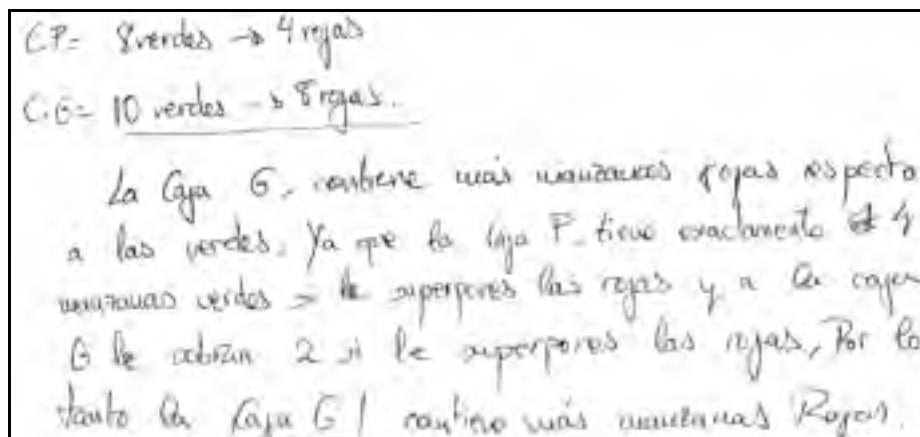 CP= 8 verdes → 4 rojas
C.G= 10 verdes → 8 rojas.
La Caja G. contiene más manzanas rojas respecto
a las verdes. Ya que la caja P. tiene exactamente 4
manzanas verdes si le superpones las rojas y a la caja
G le sobran 2 si le superpones las rojas, Por lo
tanto la Caja G contiene más manzanas Rojas.